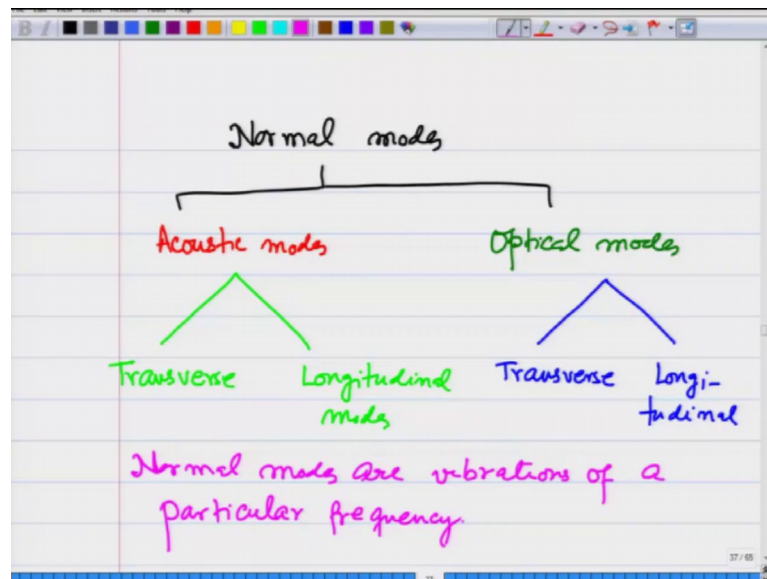 Normal modes
Acoustic modes Optical modes
Transverse Longitudinal modes Transverse Longi-tudinal
Normal modes are vibrations of a
particular frequency.
37/65